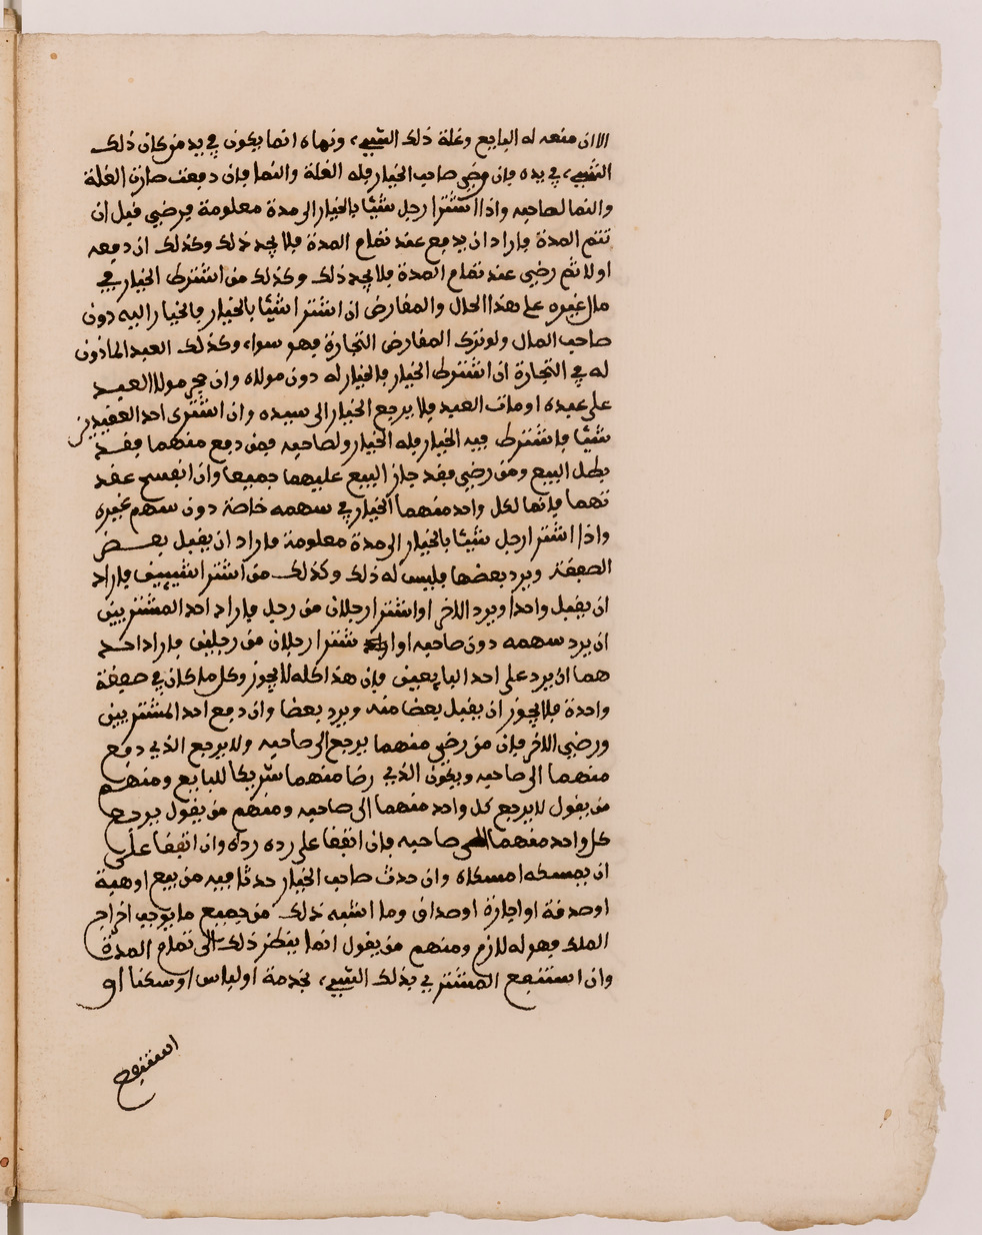 الا ان منعه له البايع وغلة ذلك الشيء ونماه انما يكون في يد من كان ذلك
الشيء في يده فان رضي صاحب الخيار فله الغلة والنما فان دفعت صارة الغلة
والنما لصاحبه واذا اشترا رجل شيئا بالخيار الى مدة معلومة فرضي قبل ان
تتم المدة فاراد ان يدفع عند تمام المدة فلا يجد ذلك وكذلك ان دفعه
اولا ثم رضي عند تمام المدة فلا يجد ذلك وكذلك من اشترط الخيار في
مال غيره على هذا الحال والمقارض ان اشترا شيئا بالخيار فالخيار اليه دون
صاحب المال ولو ترك المقارض التجارة فهو سواء وكذلك العبد الماذون
له في التجارة ان اشترط الخيار فالخيار له دون مولاه وان حجر مولا العبد
على عبده او مات العبد فلا يرجع الخيار الى سيده وان اشترى احد العقيدين
شيئا فاشترط فيه الخيار فله الخيار ولصاحبه فمن دفع منهما فقد
بطل البيع ومن رضي فقد جاز البيع عليهما جميعا وان انفسخ عقد
تهما فانما لكل واحد منهما الخيار في سهمه خاصة دون سهم غيره
واذا اشترا رجل شيئا بالخيار الى مدة معلومة فاراد ان يقبل بعض
الصفقة ويرد بعضها فليس له ذلك وكذلك من اشترا شيئين فاراد
ان يقبل واحدا ويرد الاخر او اشترا رجلان من رجل فاراد احد المشتريين
ان يرد سهمه دون صاحبه او اشترا رجلان من رجلين فاراد احد
هما ان يرد على احد البايعين فان هذا كله لا يجوز وكل ما كان في صفقة
واحدة فلا يجوز ان يقبل بعضا منه ويرد بعضا وان دفع احد المشتريين
ورضي الاخر فان من رضي منهما يرجع الى صاحبه ولا يرجع الذي دفع
منهما الى صاحبه ويكون الذي رضا منهما شريكا للبايع ومنهم
من يقول لا يرجع كل واحد منهما الى صاحبه ومنهم من يقول يرجع
كل واحد منهما الى صاحبه فان اتفقا على رده رداه وان اتفقا على
ان يمسكه امسكاه وان حدث صاحب الخيار حدثا فيه من بيع او هبة
او صدقة او اجارة او صداق وما اشبه ذلك من جميع ما يوجب اخراج
الملك فهو له لازم ومنهم من يقول انما ينظر ذلك الى تمام المدة
وان استنفع المشتري بذلك الشيء بخدمة او لباس او سكنا او